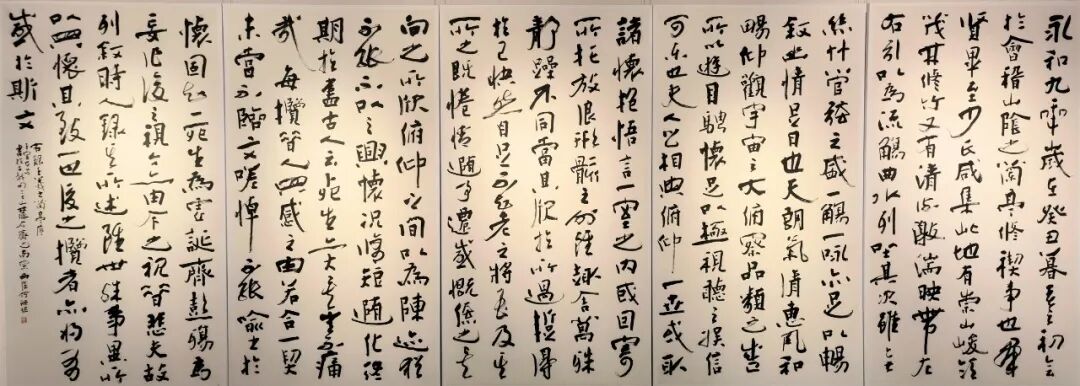 永和九年歲在癸丑暮春之初會
於會稽山陰之蘭亭修禊事也群
賢畢至少長咸集此地有崇山峻領
茂林修竹又有清流激湍映帶左
右引以為流觴曲水列坐其次雖無
絲竹管絃之盛一觴一詠亦足以暢
敘幽情是日也天朗氣清惠風和
暢仰觀宇宙之大俯察品類之盛
所以遊目騁懷足以極視聽之娛信
可樂也夫人之相與俯仰一世或取
諸懷抱悟言一室之內或因寄
所托放浪形骸之外雖趣舍萬殊
靜躁不同當其欣於所遇暫得
於己快然自足不知老之將至及其
所之既惓情隨事遷感慨係之矣
向之所欣俯仰之間以為陳迹猶
不能不以之興懷況修短隨化終
期於盡古人云死生亦大矣豈不痛
哉每攬昔人興感之由若合一契
未嘗不臨文嗟悼不能喻之於
懷固知一死生為虛誕齊彭殤為
妄作後之視今亦由今之視昔悲夫故
列敘時人錄其所述雖世殊事異所
以興懷其致一也後之攬者亦將有
感於斯文
右錄王羲之蘭亭序